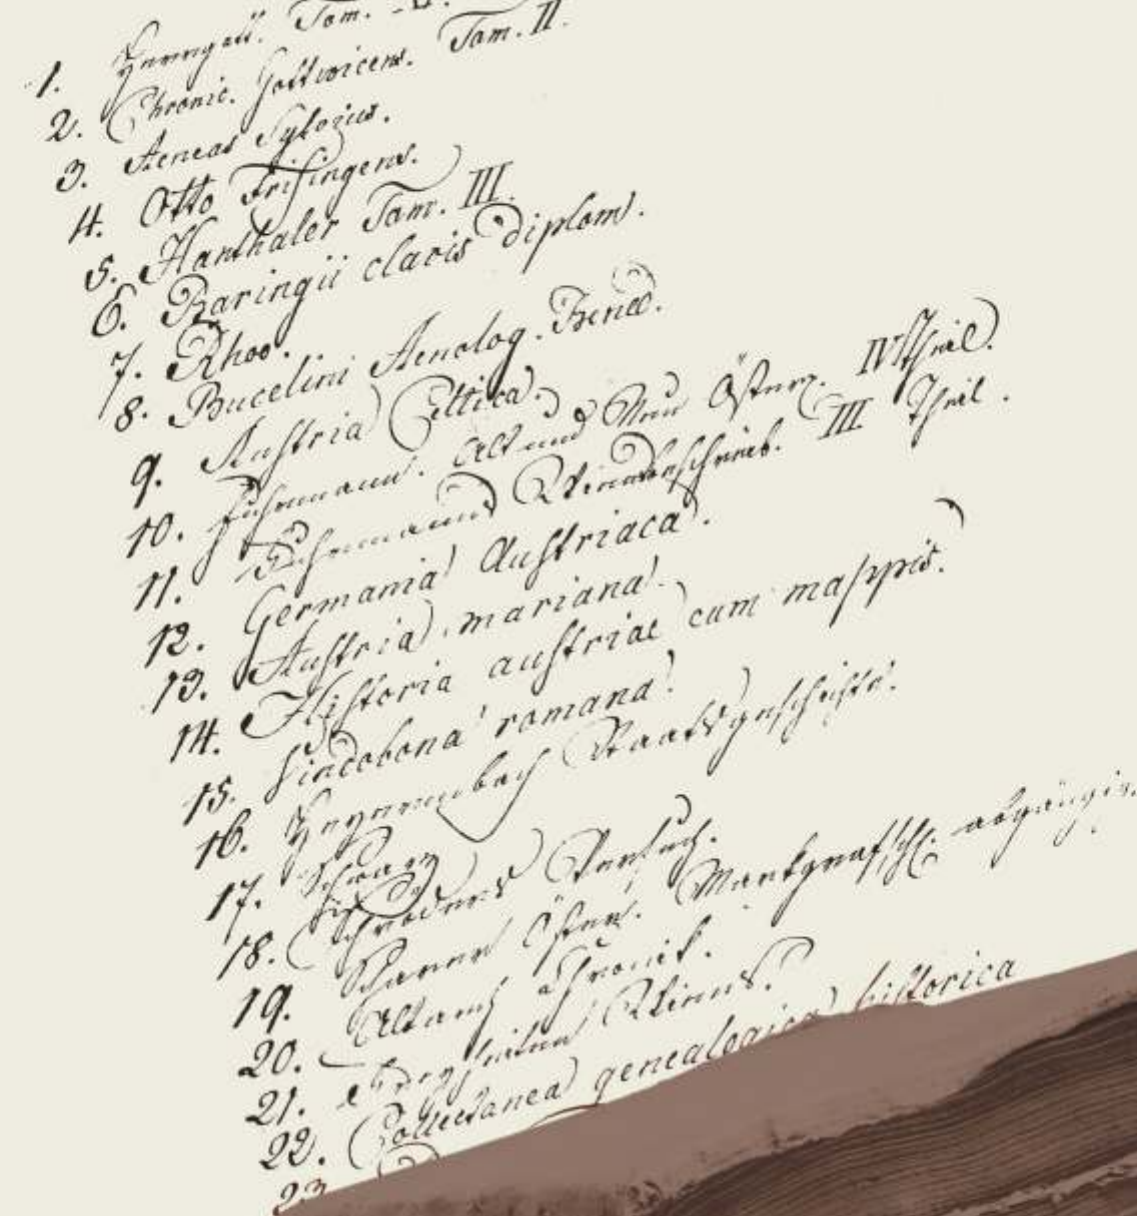 1. Herrgott. Tom. II.
2. Chronic. Gottwicens. Tom. II.
3. Aeneas Sylvius.
4. Otto Frisingens.
5. Hanthaler Tom. III.
6. Baringii clavis diplom.
7. Rhoo.
8. Bucelini Aenolog. Bened.
9. Austria Celtica.
10. Fuhrmann. Alt und Neu Österr. IV Theil.
11. Fuhrmann Wiennbeschreib. III Theil.
12. Germania Austriaca.
13. Austria mariana.
14. Historia austriae cum mappis.
15. Vindobona romana.
16. Heyrenbach Staatsgeschichte.
17. Schwarz
18. Schröders Versuch.
19. Österr. Markgrafsch.
20. Chronik.
21. Wiens.
22. Collectanea genealogica historica
23.